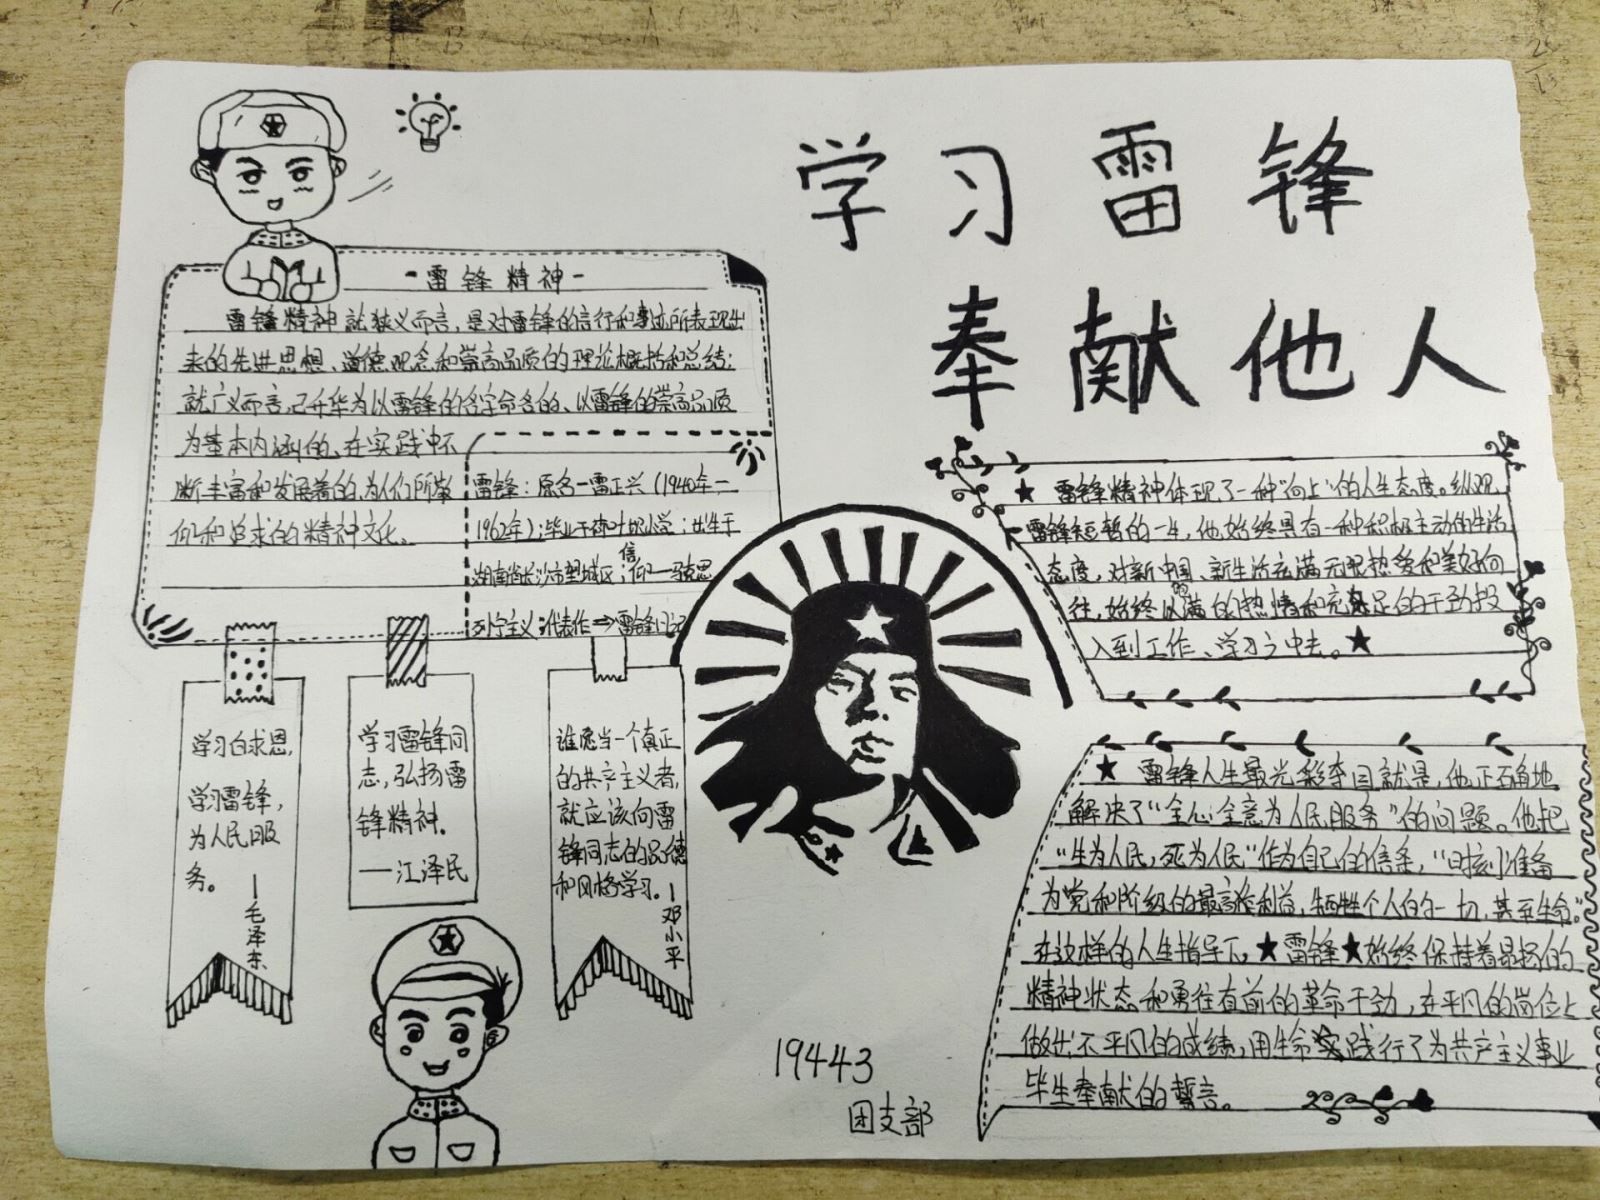 学习雷锋
奉献他人
-雷锋精神-
雷锋精神就狭义而言,是对雷锋的言行和事迹所表现出
来的先进思想、道德观念和崇高品质的理论概括和总结;
就广义而言,已升华为以雷锋的名字命名的、以雷锋的崇高品质
为基本内涵的、在实践中不
断丰富和发展着的,为人们所敬
仰和追求的精神文化、
雷锋:原名—雷正兴(1940年—
1962年);毕业于荷叶坝小学;出生于
湖南省长沙市望城区;信仰—马克思
列宁主义;代表作⇒雷锋日记
学习白求恩,
学习雷锋,
为人民服
务。
—毛泽东
学习雷锋同
志,弘扬雷
锋精神.
——江泽民
谁愿当一个真正
的共产主义者,
就应该向雷
锋同志的品德
和风格学习.
—邓小平
★ 雷锋精神体现了一种“向上”的人生态度。纵观
雷锋短暂的一生,他始终具有一种积极主动的生活
态度,对新中国、新生活充满无限热爱和美好向
往,始终以满的热情和充足的干劲投
入到工作、学习之中去。★
★ 雷锋人生最光彩夺目就是,他正确地
解决了“全心全意为人民服务”的问题。他把
“生为人民,死为人民”作为自己的信条,“时刻准备
为党和阶级的最高利益,牺牲个人的一切,甚至生命”
在这样的人生指导下,★雷锋★始终保持着昂扬的
精神状态和勇往直前的革命干劲,在平凡的岗位上
做出不平凡的成绩,用生命实践行了为共产主义事业
毕生奉献的誓言。
19443
团支部